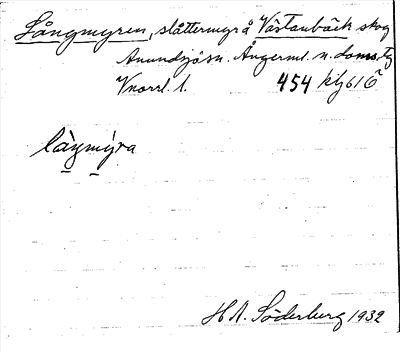 Långmyren, slåttermyr å Västanbäck skog
Anundsjö sn. Ångerml. n. doms. tg
Vnorrl. l. 454 kfj 61 G
làŋmỳra
H A. Söderberg 1932